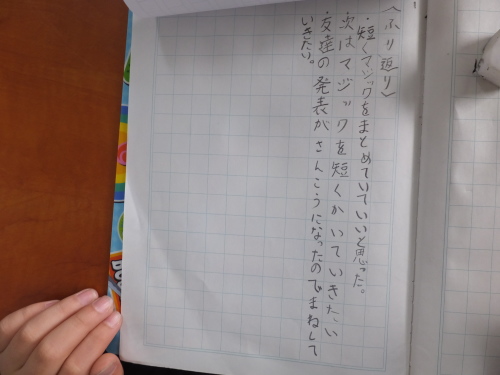 〈ふり返り〉
・短くマジックをまとめていていいと思った。
・次はマジックを短くかいていきたい
・友達の発表がさんこうになったのでまねして
いきたい。